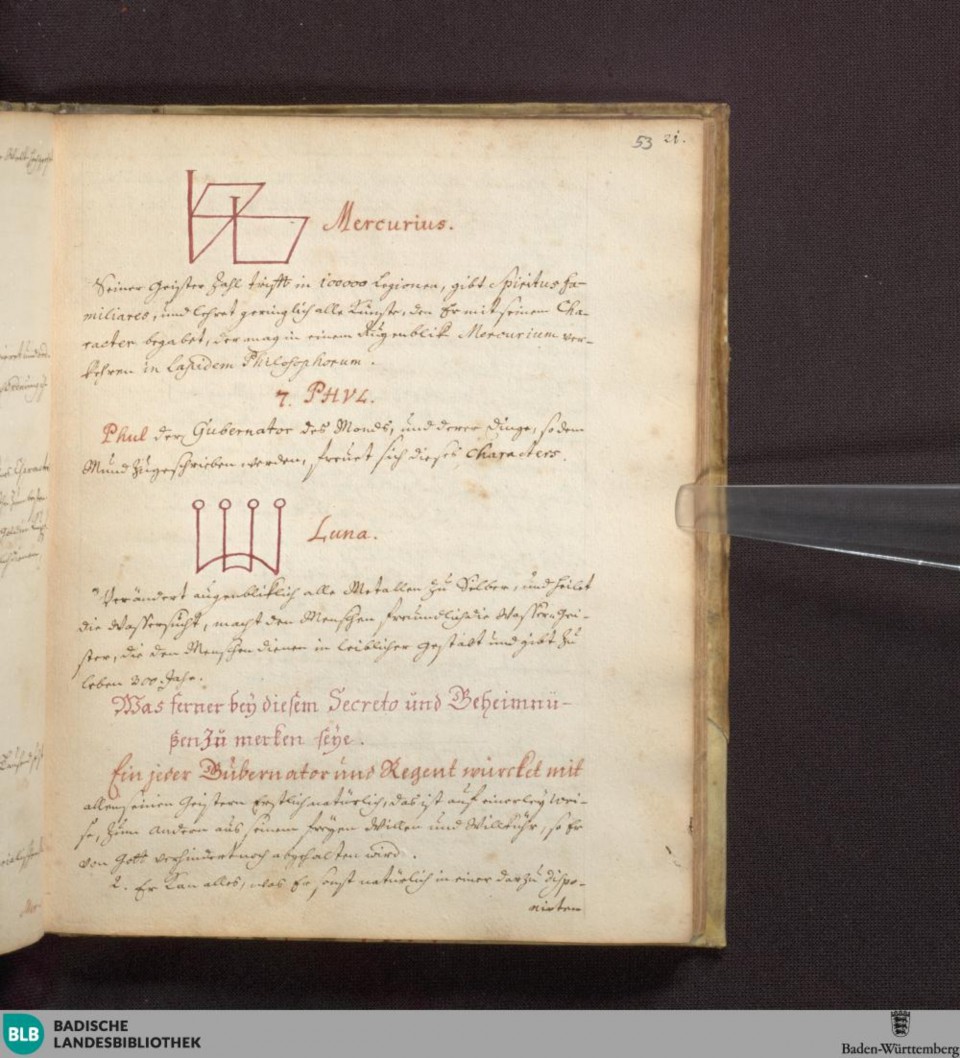 53 21.
Mercurius.
Seiner Geister Zahl trifft in 100000 Legionen, gibt Spiritus fa-
miliares, und lehret geringlich alle Künste, den Er mit seinem Cha-
racter begabet, der mag in einem Augenblik Mercurium ver-
kehren in Lapidem Philosophorum.
7. PHVL.
Phul der Gubernator des Monds, und derer Dinge, so dem
Mund zugeschrieben werden, freuet sich dieses Characters.
Luna.
Verändert augenbliklich alle Metallen zu Silber, und heilet
die Wassersucht, macht den Menschen freundlich die Wasser-Gei-
ster, die den Menschen dienen in leiblicher gestalt und gibt zu
leben 300. Jahr.
Was ferner bey diesem Secreto und Geheimnü-
ßen zu merken seye.
Ein jeder Gubernator und Regent würcket mit
allen seinen Geistern Erstlich natürlich, das ist auf einerley Wei-
se, zum Andern aus seinem freyen Willen und Willkühr, so Er
von Gott verhindert noch abgehalten wird.
2. Er kan alles, was Er sonst natürlich in einer darzu dispo-
nirten
BLB
BADISCHE
LANDESBIBLIOTHEK
Baden-Württemberg